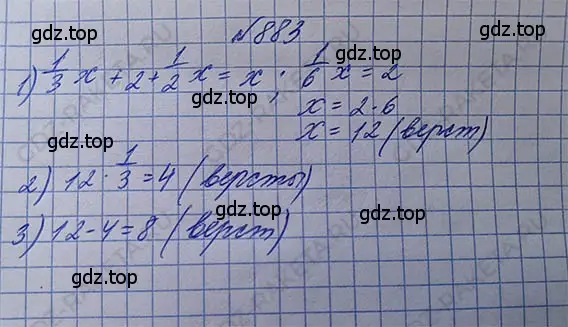 №883
1) 1/3 x + 2 + 1/2 x = x ; 1/6 x = 2
x = 2·6
x = 12 (верст)
2) 12 · 1/3 = 4 (версты)
3) 12 - 4 = 8 (вёрст)
gdz.top
gdz.top
gdz.top
gdz.top
gdz.top
gdz.top
gdz.top
gdz.top